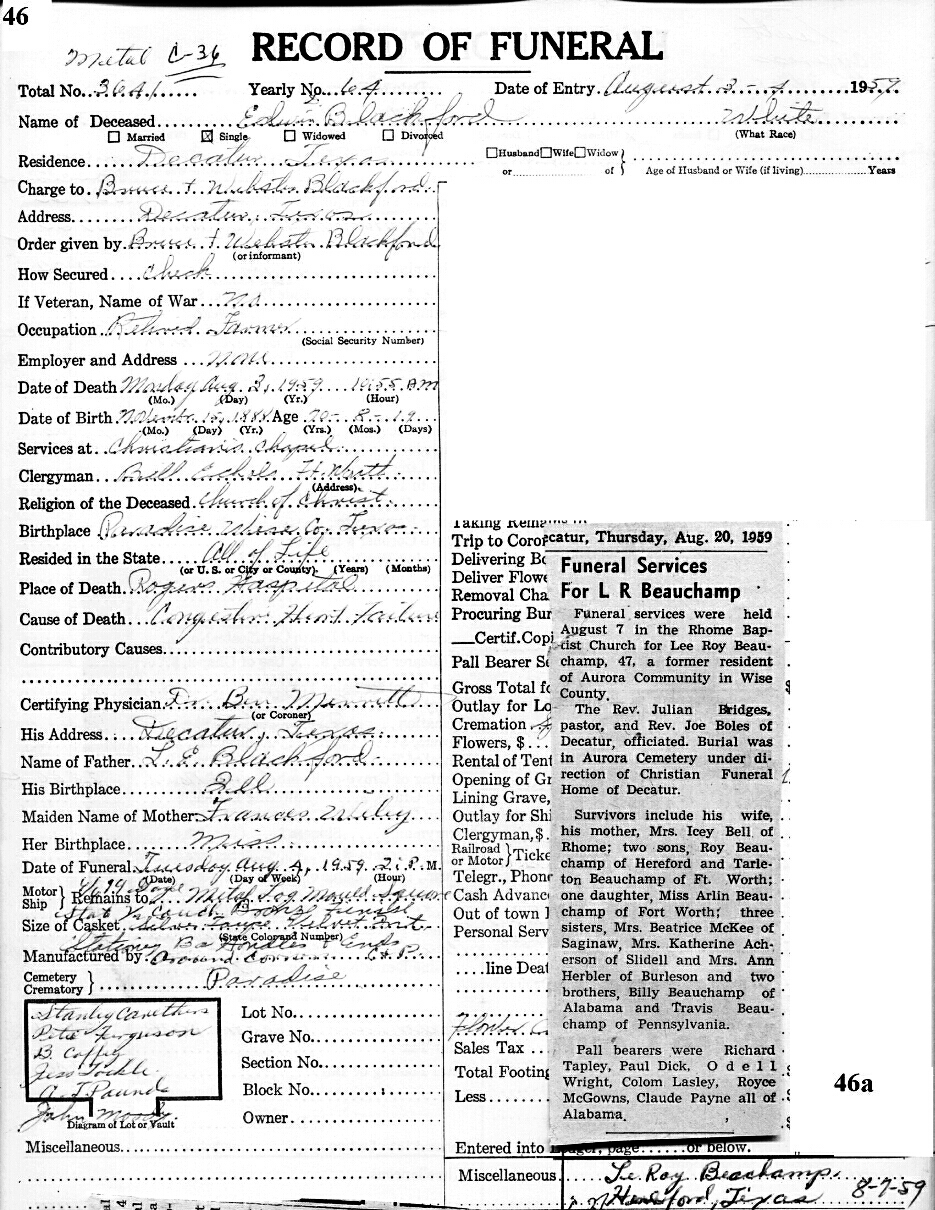 46
Metal C-36
RECORD OF FUNERAL
Total No. 3641 Yearly No. 64 Date of Entry August 3-4 1959
Name of Deceased Edwin Blackford White
Married Single Widowed Divorced (What Race)
Residence Decatur, Texas Husband Wife Widow
or of Age of Husband or Wife (if living) Years
Charge to Bruce & Webster Blackford
Address Decatur, Texas
Order given by Bruce & Webster Blackford
(or informant)
How Secured check
If Veteran, Name of War no
Occupation Retired Farmer
(Social Security Number)
Employer and Address none
Date of Death Monday Aug 3, 1959 10:55 AM
(Mo.) (Day) (Yr.) (Hour)
Date of Birth November 15, 1888 Age 70 - 8 - 19
(Mo.) (Day) (Yr.) (Yrs.) (Mos.) (Days)
Services at Christian's Chapel
Clergyman Bill Echols Ft. Worth
(Address)
Religion of the Deceased Church of Christ
Birthplace Paradise Wise Co. Texas
Resided in the State All of Life
(or U. S. or City or County) (Years) (Months)
Place of Death Rogers Hospital
Cause of Death Congestive Heart Failure
Contributory Causes
Certifying Physician Dr. Ben Merritt
(or Coroner)
His Address Decatur, Texas
Name of Father L. E. Blackford
His Birthplace Ill
Maiden Name of Mother Frances Wiley
Her Birthplace Miss
Date of Funeral Tuesday Aug 4, 1959 2: P. M.
(Date) (Day of Week) (Hour)
Motor
Ship
Remains to Metal Square
Size of Casket Silver
(State Color and Number)
Manufactured by
Cemetery
Crematory
Paradise
Stanley Caruthers
Pete Ferguson
B. Coffey
Jess
A. J. Pounds
John Moody
Diagram of Lot or Vault
Lot No.
Grave No.
Section No.
Block No.
Owner
Miscellaneous
Trip to Coro
Delivering Bo
Deliver Flowe
Removal Cha
Procuring Bur
Certif. Copi
Pall Bearer Se
Gross Total fo
Outlay for Lo
Cremation
Flowers, $
Rental of Tent
Opening of Gr
Lining Grave,
Outlay for Shi
Clergyman, $
Railroad
or Motor
Ticke
Telegr., Phone
Cash Advance
Out of town
Personal Serv
line Deat
Sales Tax
Total Footing
Less
Entered into Ledger, page or below.
catur, Thursday, Aug. 20, 1959
Funeral Services
For L R Beauchamp
Funeral services were held
August 7 in the Rhome Bap-
tist Church for Lee Roy Beau-
champ, 47, a former resident
of Aurora Community in Wise
County.
The Rev. Julian Bridges,
pastor, and Rev. Joe Boles of
Decatur, officiated. Burial was
in Aurora Cemetery under di-
rection of Christian Funeral
Home of Decatur.
Survivors include his wife,
his mother, Mrs. Icey Bell of
Rhome; two sons, Roy Beau-
champ of Hereford and Tarle-
ton Beauchamp of Ft. Worth;
one daughter, Miss Arlin Beau-
champ of Fort Worth; three
sisters, Mrs. Beatrice McKee of
Saginaw, Mrs. Katherine Ach-
erson of Slidell and Mrs. Ann
Herbler of Burleson and two
brothers, Billy Beauchamp of
Alabama and Travis Beau-
champ of Pennsylvania.
Pall bearers were Richard
Tapley, Paul Dick, Odell
Wright, Colom Lasley, Royce
McGowns, Claude Payne all of
Alabama.
46a
Miscellaneous Le Roy Beachamp
Hereford, Texas 8-7-59